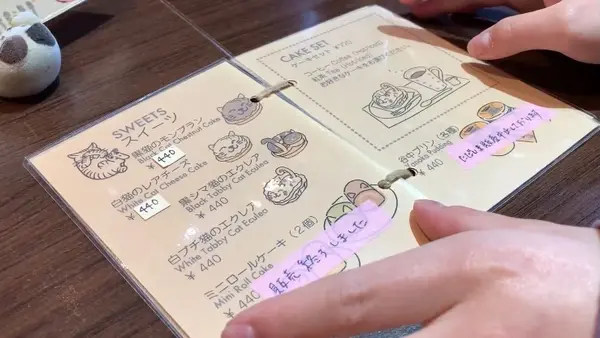 SWEETS
スイーツ
黒猫のモンブラン
Black Cat Chestnut Cake
¥440
白猫のレアチーズ
White Cat Cheese Cake
440
黒シマ猫のエクレア
Black Tabby Cat Ecalea
¥440
白ブチ猫のエクレア
White Tabby Cat Ecalea
¥440
ミニロールケーキ（2個）
Mini Roll Cake
¥440
販売終了しました
CAKE SET
ケーキセット ¥700
コーヒー Coffee (Hot/Iced)
紅茶 Tea (Hot/Iced)
谷中プリン
Yanaka Pudding
¥440